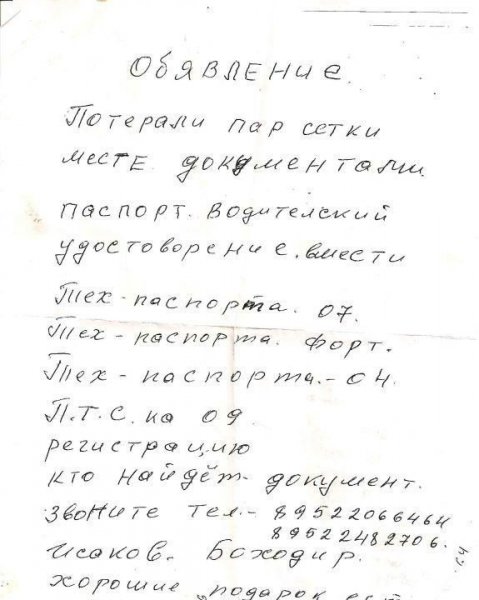 Обявление
Потерали пар сетки
месте документами
паспорт. водителский
удостоворение. вмести
Тех-паспорта. 07.
Тех-паспорта. форт.
Тех-паспорта.-04.
П.Т.С. на 09
регистрацию
кто найдёт документ.
звоните тел.- 89522066464
89522482706.
Исаков. Боходир.
хорошие подарок ест